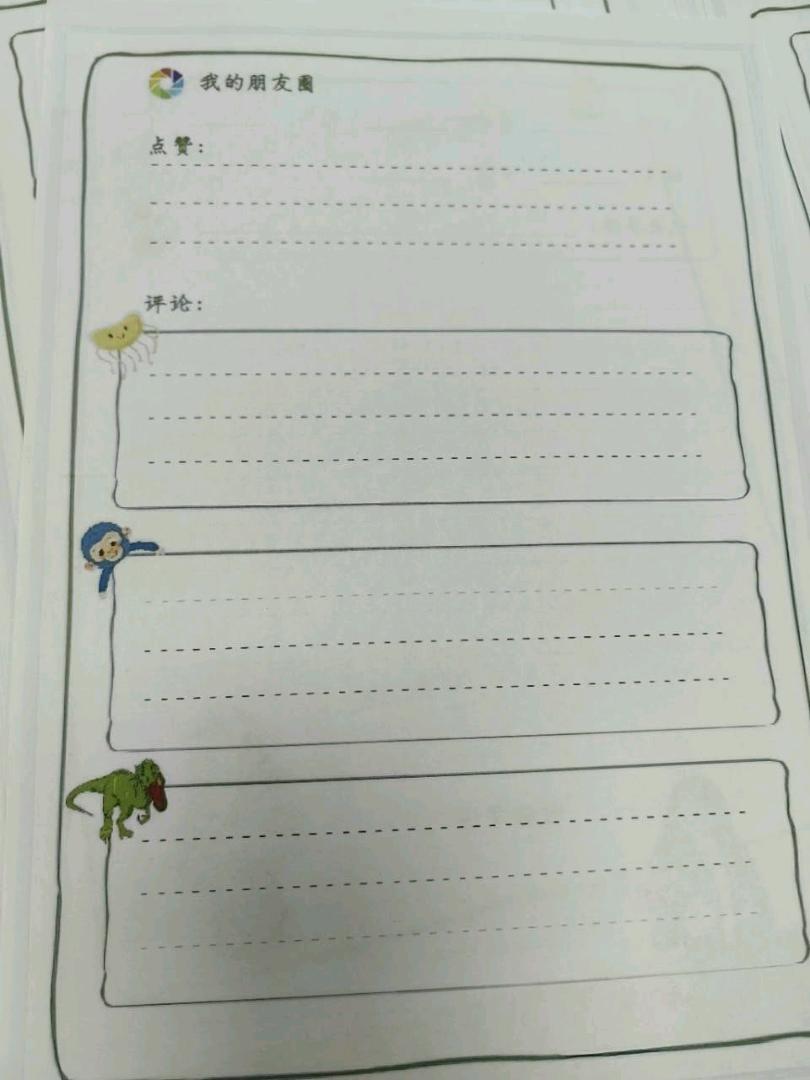 我的朋友圈
点赞：
评论：